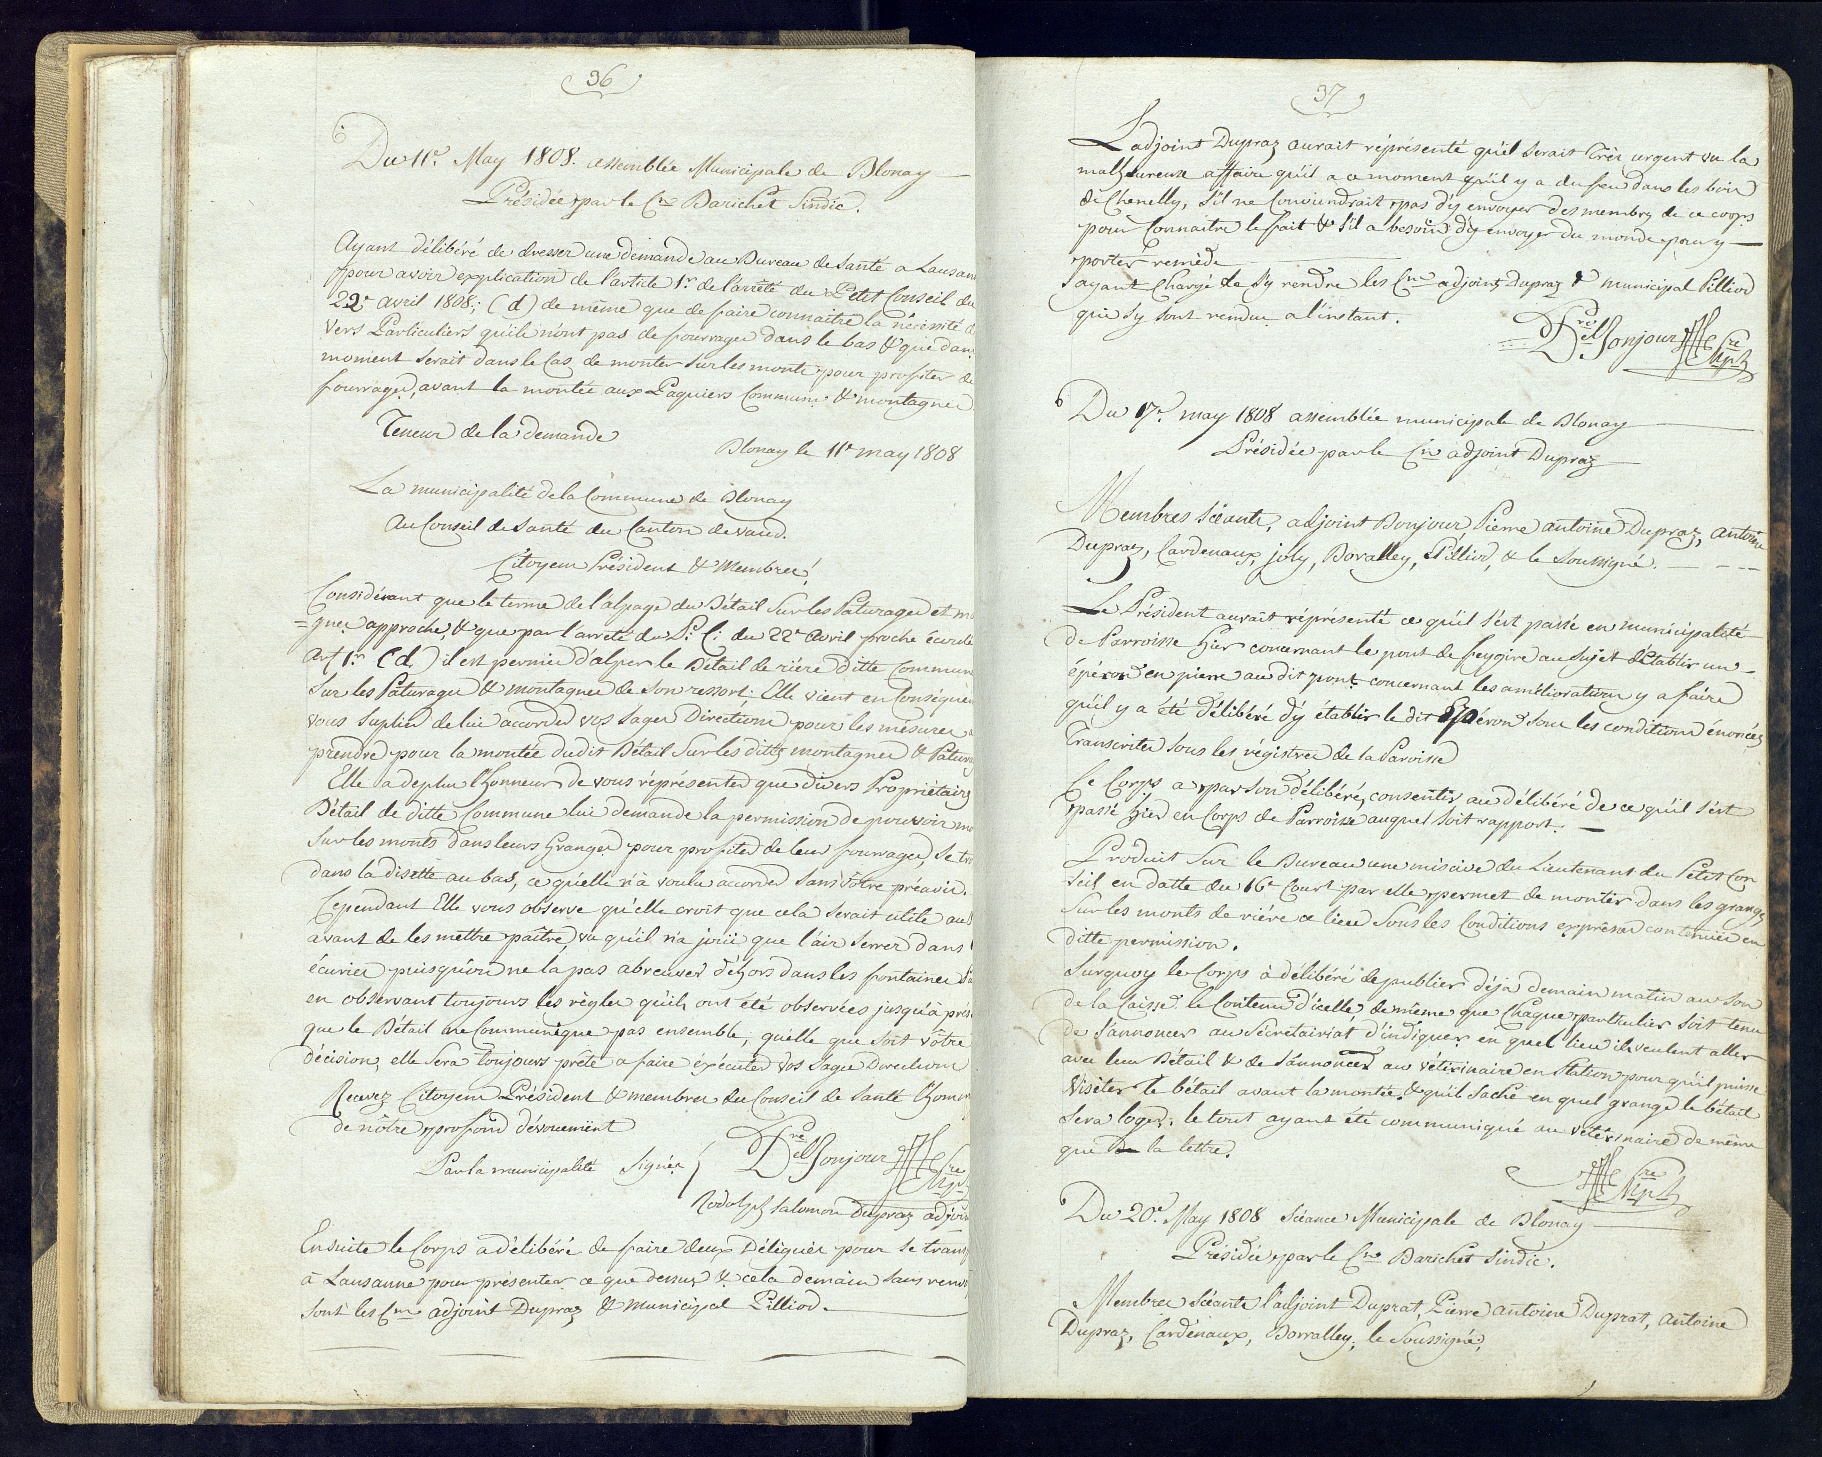 36
Du 11e. May 1808. assemblée Municipale de Blonay
Présidée par le Cne Barichet Sindic.
Ayant délibéré de dresser une demande au Bureau de Santé a Lausan
pour avoir explication de l'artile 1r. de l'arrêté du Petit Conseil du
22e avril 1808; (d) de même que de faire connaitre la nécessité
vers Particuliers qu'ils n'ont pas de fourrages dans le bas & que dans
moment serait dans le Cas de monter sur les monts pour profiter de
fourrages, avant la montée aux Paquiers Communs & montagnes
Teneur de la demande
Blonay le 11e may 1808
La municipalité de la Commune de Blonay
Au Conseil de Santé du Canton de vaud.
Citoyens Président & Membres!
Considérant que le terme de l'alpage du Bétail sur les Paturages et mo
=gnes approche, & que par l'arreté du P: C: du 22e Avril proche écoulé
Art 1er (d) il est permis d'alper le Bétail de riére ditte Commune
sur les Paturages & montagnes de son ressort; Elle vient en Conséquen
vous suplier de lui accorder vos sages Directions pour les mesures a
prendre pour la montée dudit Bétail sur les dittes montagnes & Patura
Elle a de plus l'honneur de vous réprésenter que divers Propriétaires
Bétail de ditte Commune lui demande la permission de pouvoir mo
sur les monts dans leurs Granges pour profiter de leur fourrages, se tro
dans la disette au bas, ce qu'elle n'à voulu acorder sans vôtre préavis.
Cependant Elle vous observe qu'elle croit que cela serait utile au
avant de les mettre paître, vu qu'il n'a jouii que l'air serrer dans
écuries puisqu'on ne la pas abreuver déhors dans les fontaines
en observant toujours les règles qu'ils ont été observées jusqu'à prés
que le Bétail ne Communique pas ensemble, quelle que soit vôtre
décision, elle sera toujours prête a faire éxécuter vos sages Directions
Recevez Citoyens Président & membres du Conseil de Santé l'homm
de nôtre profond dévouement
Par la municipalité Signés Del Bonjour
Rodolph Salomon Dupraz adjoin
Ensuite le Corps a délibéré de faire deux Délégués pour se transp
à Lausanne pour présenter ce que dessus & cela demain sans renvoi
sont les Cns adjoint Dupraz & municipal Pilliod.
37
L'adjoint Dupraz aurait réprésenté qu'il serait très urgent vu la
malheureuse affaire qu'il a ce moment qu'il y a du feu dans les bois
de Chenelly, s'il ne Conviendrait pas d'y envoyer des membres de ce corps
pour Connaitre le fait & s'il a besoin d'y envoyer du monde pour y
porter remède
ayant Chargé de s'y rendre les Cns adjoint Dupraz & municipal Pilliod
qui s'y sont rendus a l'instant.
Del Bonjour
Du 17e. may 1808 assemblée municipale de Blonay
Présidée par le Cn adjoint Dupraz
Membres Séants, adjoint Bonjour, Pierre antoine Dupraz, antoine
Dupraz, Cardenaux, joly, Borralley, Pilliod, & le Soussigné.
Le Président aurait réprésenté ce qu'il s'est passé en municipalité
de Parroisse hier concernant le pont de feygire au sujet d'établir un
épéron en pierre au dit pont concernant les améliorations y a faire
qu'il y a été délibéré d'y établir le dit Epéron sous les conditions énoncées
Transcrites sous les régistres de la Paroisse
Ce Corps a par son délibéré, consentis au délibéré de ce qu'il s'est
passé hier en Corps de Parroisse auquel soit rapport.
Produit sur le Bureau une missive du Lieutenant du Petit Con
seil en datte du 16e Court par elle permet de monter dans les granges
sur les monts de riére ce lieu sous les Conditions expresses contenues en
ditte permission.
Surquoy le Corps à délibéré de publier déja demain matin au son
de la Caisse le Contenu d'icelle de même que Chaque particulier soit tenu
de s'annoncer au sécretairiat d'indiquer en quel lieu ils veulent aller
avec leur Bétail & de s'annoncer au vétérinaire en station pour qu'il puisse
visiter le bétail avant la montée & qu'il sache en quel grange le bétail
sera loger: le tout ayant été communiqué au vétérinaire de même
que la lettre.
Du 20e. May 1808 Séance Municipale de Blonay
Présidée par le Cne Barichet Sindic.
Membres Séants l'adjoint Duprat, Pierre antoine Duprat, antoine
Dupraz, Cardenaux, Borralley, le Soussigné,